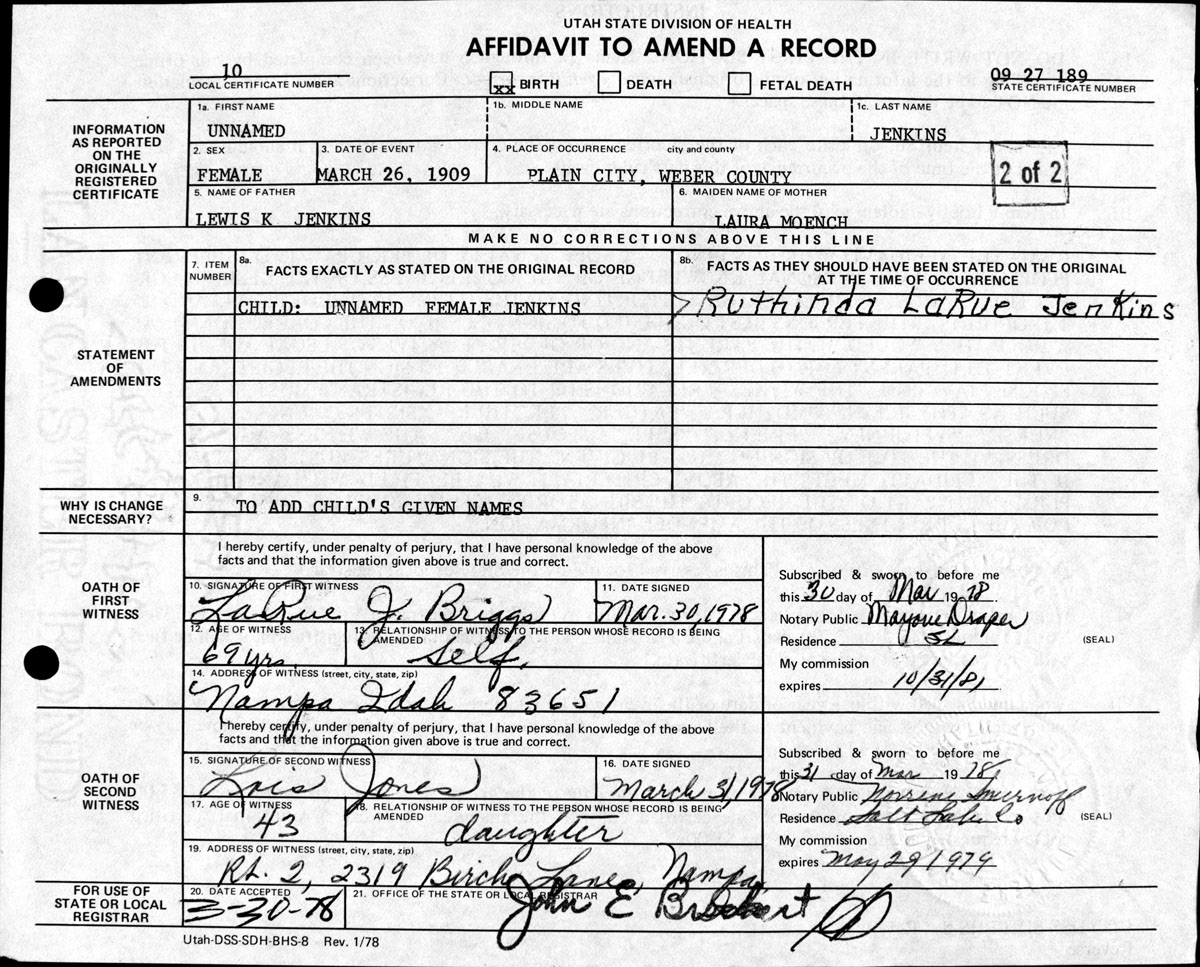 UTAH STATE DIVISION OF HEALTH
AFFIDAVIT TO AMEND A RECORD
10
LOCAL CERTIFICATE NUMBER
xx BIRTH DEATH FETAL DEATH
09 27 189
STATE CERTIFICATE NUMBER
INFORMATION AS REPORTED ON THE ORIGINALLY REGISTERED CERTIFICATE
1a. FIRST NAME 1b. MIDDLE NAME 1c. LAST NAME
UNNAMED JENKINS
2. SEX 3. DATE OF EVENT 4. PLACE OF OCCURRENCE city and county
FEMALE MARCH 26, 1909 PLAIN CITY, WEBER COUNTY
2 of 2
5. NAME OF FATHER 6. MAIDEN NAME OF MOTHER
LEWIS K JENKINS LAURA MOENCH
MAKE NO CORRECTIONS ABOVE THIS LINE
STATEMENT OF AMENDMENTS
7. ITEM NUMBER
8a. FACTS EXACTLY AS STATED ON THE ORIGINAL RECORD
8b. FACTS AS THEY SHOULD HAVE BEEN STATED ON THE ORIGINAL
AT THE TIME OF OCCURRENCE
CHILD: UNNAMED FEMALE JENKINS
Ruthinda LaRue Jenkins
WHY IS CHANGE NECESSARY?
9. TO ADD CHILD'S GIVEN NAMES
OATH OF FIRST WITNESS
I hereby certify, under penalty of perjury, that I have personal knowledge of the above
facts and that the information given above is true and correct.
10. SIGNATURE OF FIRST WITNESS 11. DATE SIGNED
LaRue J. Briggs Mar. 30, 1978
12. AGE OF WITNESS 13. RELATIONSHIP OF WITNESS TO THE PERSON WHOSE RECORD IS BEING AMENDED
69 yrs. Self.
14. ADDRESS OF WITNESS (street, city, state, zip)
Nampa Idah 83651
Subscribed & sworn to before me
this 30 day of Mar 1978
Notary Public Draper
Residence SL (SEAL)
My commission
expires 10/31/81
OATH OF SECOND WITNESS
I hereby certify, under penalty of perjury, that I have personal knowledge of the above
facts and that the information given above is true and correct.
15. SIGNATURE OF SECOND WITNESS 16. DATE SIGNED
Lois Jones March 31, 1978
17. AGE OF WITNESS 18. RELATIONSHIP OF WITNESS TO THE PERSON WHOSE RECORD IS BEING AMENDED
43 daughter
19. ADDRESS OF WITNESS (street, city, state, zip)
Rt. 2, 2319 Birch Lane, Nampa
Subscribed & sworn to before me
this 31 day of Mar 1978
Notary Public
Residence Salt Lake Co (SEAL)
My commission
expires May 29, 1979
FOR USE OF STATE OR LOCAL REGISTRAR
20. DATE ACCEPTED 21. OFFICE OF THE STATE OR LOCAL REGISTRAR
3-30-78 John E
Utah-DSS-SDH-BHS-8 Rev. 1/78